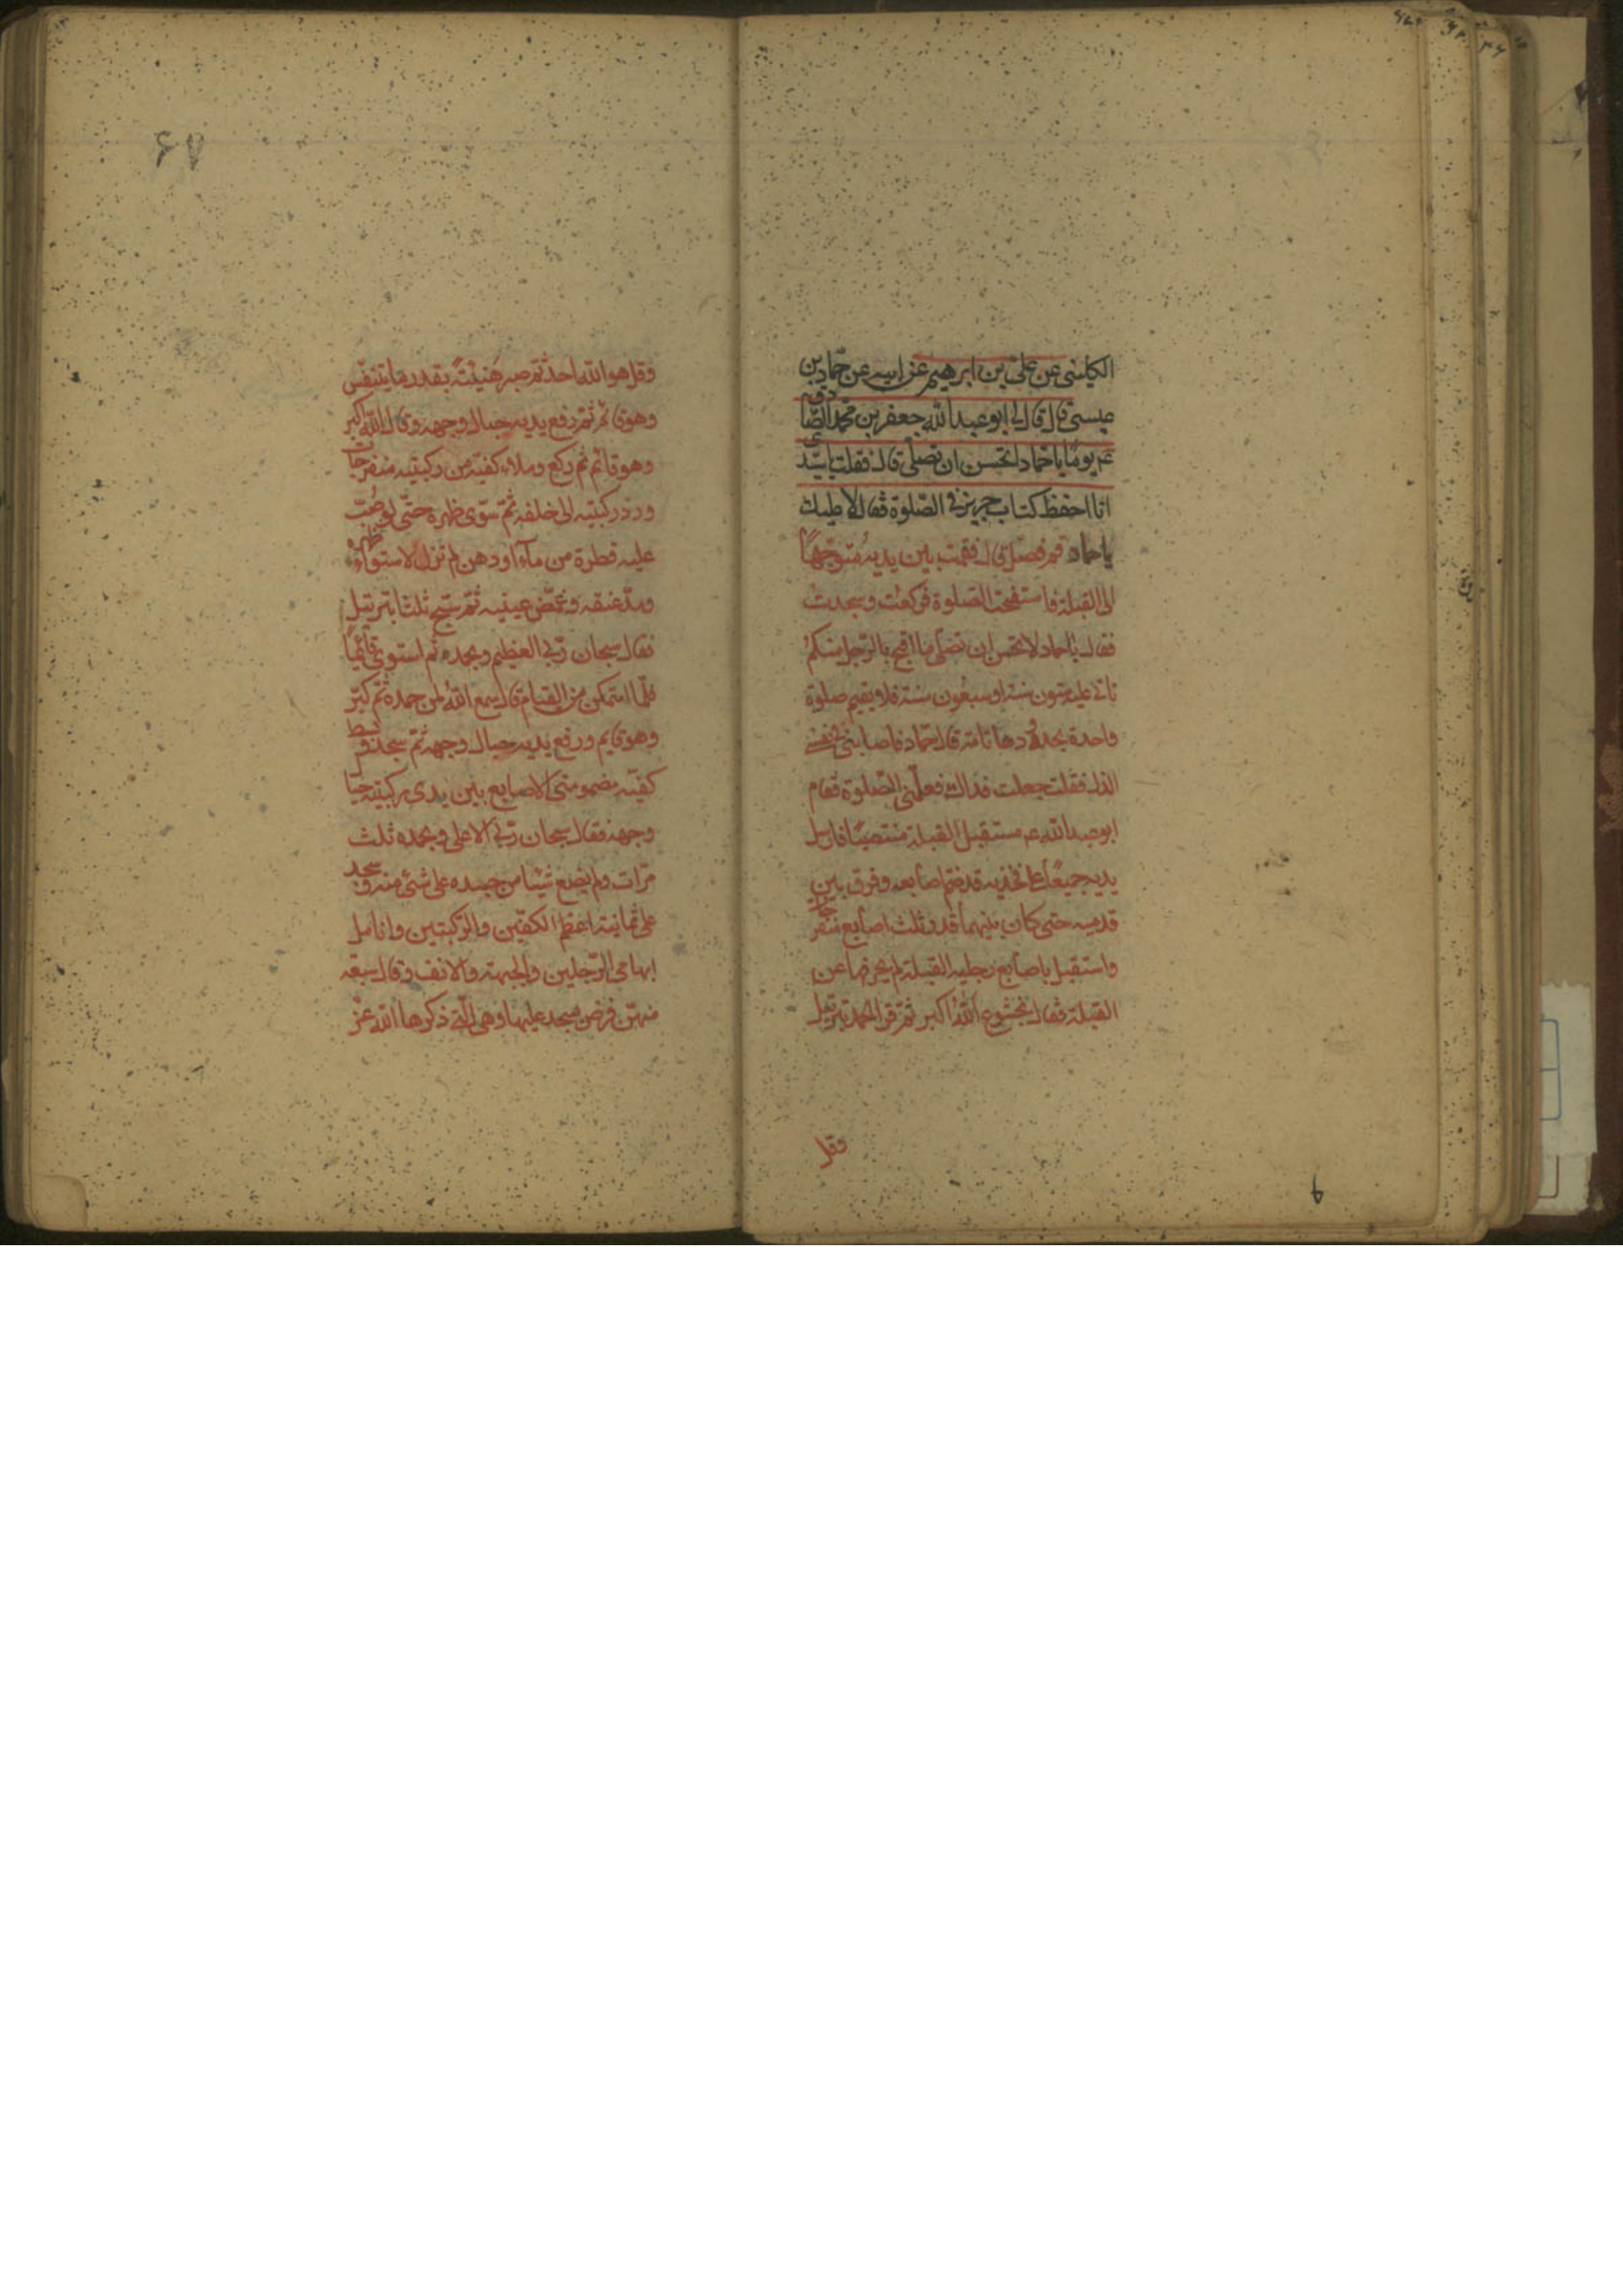 الكليني عن علي بن ابرهيم عن ابيه عن حماد بن
عيسى قال قال لي ابو عبد الله جعفر بن محمد الصادق
عم يومًا يا حماد تحسن ان تصلي قال فقلت يا سيدي
انا احفظ كتاب حريز في الصلوة فقال لا عليك
يا حماد قم فصل قال فقمت بين يديه متوجهًا
الى القبلة فاستفتحت الصلوة فركعت وسجدت
فقال يا حماد لا تحسن ان تصلي ما اقبح بالرجل منكم
تاتي عليه ستون سنة او سبعون سنة فلا يقيم صلوة
واحدة بحدودها تامة قال حماد فاصابني في نفسي
الذل فقلت جعلت فداك فعلمني الصلوة فقام
ابو عبد الله عم مستقبل القبلة منتصبًا فارسل
يديه جميعًا على فخذيه قد ضم اصابعه وفرق بين
قدميه حتى كان بينهما قدر ثلث اصابع منفرجات
واستقبل باصابع رجليه القبلة لم يحرفها عن
القبلة فقال بخشوع الله اكبر ثم قرا الحمد بترتيل
وقل
۶۷
وقل هو الله احد ثم صبر هنيئة بقدر ما يتنفس
وهو قائم ثم رفع يديه حيال وجهه وقال الله اكبر
وهو قائم ثم ركع وملاء كفيه من ركبتيه منفرجات
ورد ركبتيه الى خلفه ثم سوى ظهره حتى لو صب
عليه قطرة من ماء او دهن لم تزل لاستواء ظهره
ومد عنقه وغمض عينيه ثم سبح ثلثا بترتيل
فقال سبحان ربي العظيم وبحمده ثم استوى قائمًا
فلما استمكن من القيام قال سمع الله لمن حمده ثم كبر
وهو قايم ورفع يديه حيال وجهه ثم سجد وبسط
كفيه مضمومتي الاصابع بين يدي ركبتيه حيال
وجهه فقال سبحان ربي الاعلى وبحمده ثلث
مرات ولم يضع شيئا من جسده على شئ منه وسجد
على ثمانية اعظم الكفين والركبتين وانامل
ابهامي الرجلين والجبهة والانف وقال سبعة
منهن فرض يسجد عليها وهي التي ذكرها الله عز